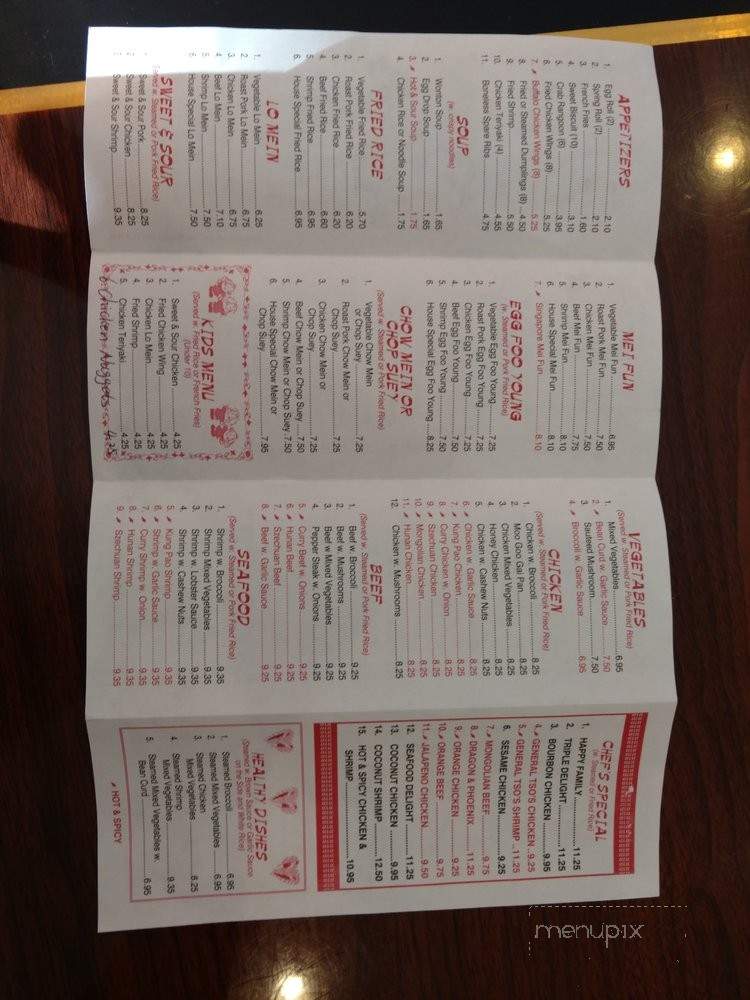 APPETIZERS
1. Egg Roll (2) 2.10
2. Spring Roll (2) 2.10
3. French Fries 1.60
4. Sweet Biscuit (10) 3.10
5. Crab Rangoon (6) 3.95
6. Fried Chicken Wings (8) 5.25
7. Buffalo Chicken Wings (8) 5.25
8. Fried or Steamed Dumplings (8) 4.50
9. Fried Shrimp 5.50
10. Chicken Teriyaki (4) 4.55
11. Boneless Spare Ribs 4.75
SOUP
(w. crispy noodles)
1. Wonton Soup 1.65
2. Egg Drop Soup 1.65
3. Hot & Sour Soup 1.75
4. Chicken Rice or Noodle Soup 1.75
FRIED RICE
1. Vegetable Fried Rice 5.70
2. Roast Pork Fried Rice 6.20
3. Chicken Fried Rice 6.20
4. Beef Fried Rice 6.60
5. Shrimp Fried Rice 6.95
6. House Special Fried Rice 6.95
LO MEIN
1. Vegetable Lo Mein 6.25
2. Roast Pork Lo Mein 6.75
3. Chicken Lo Mein 6.75
4. Beef Lo Mein 7.10
5. Shrimp Lo Mein 7.50
6. House Special Lo Mein 7.50
SWEET & SOUR
(Served w. Steamed or Pork Fried Rice)
1. Sweet & Sour Pork 8.25
2. Sweet & Sour Chicken 8.25
3. Sweet & Sour Shrimp 9.35
MEI FUN
1. Vegetable Mei Fun 6.95
2. Roast Pork Mei Fun 7.50
3. Chicken Mei Fun 7.50
4. Beef Mei Fun 7.75
5. Shrimp Mei Fun 8.10
6. House Special Mei Fun 8.10
7. Singapore Mei Fun 8.10
EGG FOO YOUNG
(w. Steamed or Pork Fried Rice)
1. Vegetable Egg Foo Young 7.25
2. Roast Pork Egg Foo Young 7.25
3. Chicken Egg Foo Young 7.25
4. Beef Egg Foo Young 7.50
5. Shrimp Egg Foo Young 7.50
6. House Special Egg Foo Young 8.25
CHOW MEIN OR
CHOP SUEY
(Served w. Steamed or Pork Fried Rice)
1. Vegetable Chow Mein
or Chop Suey 7.25
2. Roast Pork Chow Mein or
Chop Suey 7.25
3. Chicken Chow Mein or
Chop Suey 7.25
4. Beef Chow Mein or Chop Suey 7.50
5. Shrimp Chow Mein or Chop Suey 7.50
6. House Special Chow Mein or
Chop Suey 7.95
KIDS MENU
(Under 10)
(Served w. Fried Rice or French Fries)
1. Sweet & Sour Chicken 4.25
2. Fried Chicken Wing 4.25
3. Chicken Lo Mein 4.25
4. Fried Shrimp 4.25
5. Chicken Teriyaki 4.25
6. Chicken Nuggets 4.25
VEGETABLES
(Served w. Steamed or Pork Fried Rice)
1. Mixed Vegetables 6.95
2. Bean Curd w. Garlic Sauce 7.50
3. Sauteed Mushroom 7.50
4. Broccoli w. Garlic Sauce 6.95
CHICKEN
(Served w. Steamed or Pork Fried Rice)
1. Chicken w. Broccoli 8.25
2. Moo Goo Gai Pan 8.25
3. Chicken Mixed Vegetables 8.25
4. Honey Chicken 8.25
5. Chicken w. Cashew Nuts 8.25
6. Chicken w. Garlic Sauce 8.25
7. Kung Pao Chicken 8.25
8. Curry Chicken w. Onion 8.25
9. Szechuan Chicken 8.25
10. Mongolian Chicken 8.25
11. Hunan Chicken 8.25
12. Chicken w. Mushrooms 8.25
BEEF
(Served w. Steamed or Pork Fried Rice)
1. Beef w. Broccoli 9.25
2. Beef w. Mushrooms 9.25
3. Beef w Mixed Vegetables 9.25
4. Pepper Steak w. Onions 9.25
5. Curry Beef w. Onions 9.25
6. Hunan Beef 9.25
7. Szechuan Beef 9.25
8. Beef w. Garlic Sauce 9.25
SEAFOOD
(Served w. Steamed or Pork Fried Rice)
1. Shrimp w. Broccoli 9.35
2. Shrimp Mixed Vegetables 9.35
3. Shrimp w. Lobster Sauce 9.35
4. Shrimp w. Cashew Nuts 9.35
5. Kung Pao Shrimp 9.35
6. Shrimp w. Garlic Sauce 9.35
7. Curry Shrimp w. Onion 9.35
8. Hunan Shrimp 9.35
9. Szechuan Shrimp 9.35
CHEF'S SPECIAL
(w. Steamed or Fried Rice)
1. HAPPY FAMILY 11.25
2. TRIPLE DELIGHT 11.25
3. BOURBON CHICKEN 9.95
4. GENERAL TSO'S CHICKEN 9.25
5. GENERAL TSO'S SHRIMP 11.25
6. SESAME CHICKEN 9.25
7. MONGOLIAN BEEF 9.75
8. DRAGON & PHOENIX 11.25
9. ORANGE CHICKEN 9.25
10. ORANGE BEEF 9.75
11. JALAPENO CHICKEN 9.50
12. SEAFOOD DELIGHT 11.25
13. COCONUT CHICKEN 9.95
14. COCONUT SHRIMP 12.50
15. HOT & SPICY CHICKEN &
SHRIMP 10.95
HEALTHY DISHES
(Steamed w. Brown Sauce or Garlic Sauce
on the Side and White Rice)
1. Steamed Broccoli 6.95
2. Steamed Mixed Vegetables 6.95
3. Steamed Chicken
Mixed Vegetables 8.25
4. Steamed Shrimp
Mixed Vegetables 9.35
5. Steamed Mixed Vegetables w.
Bean Curd 6.95
HOT & SPICY
menupix